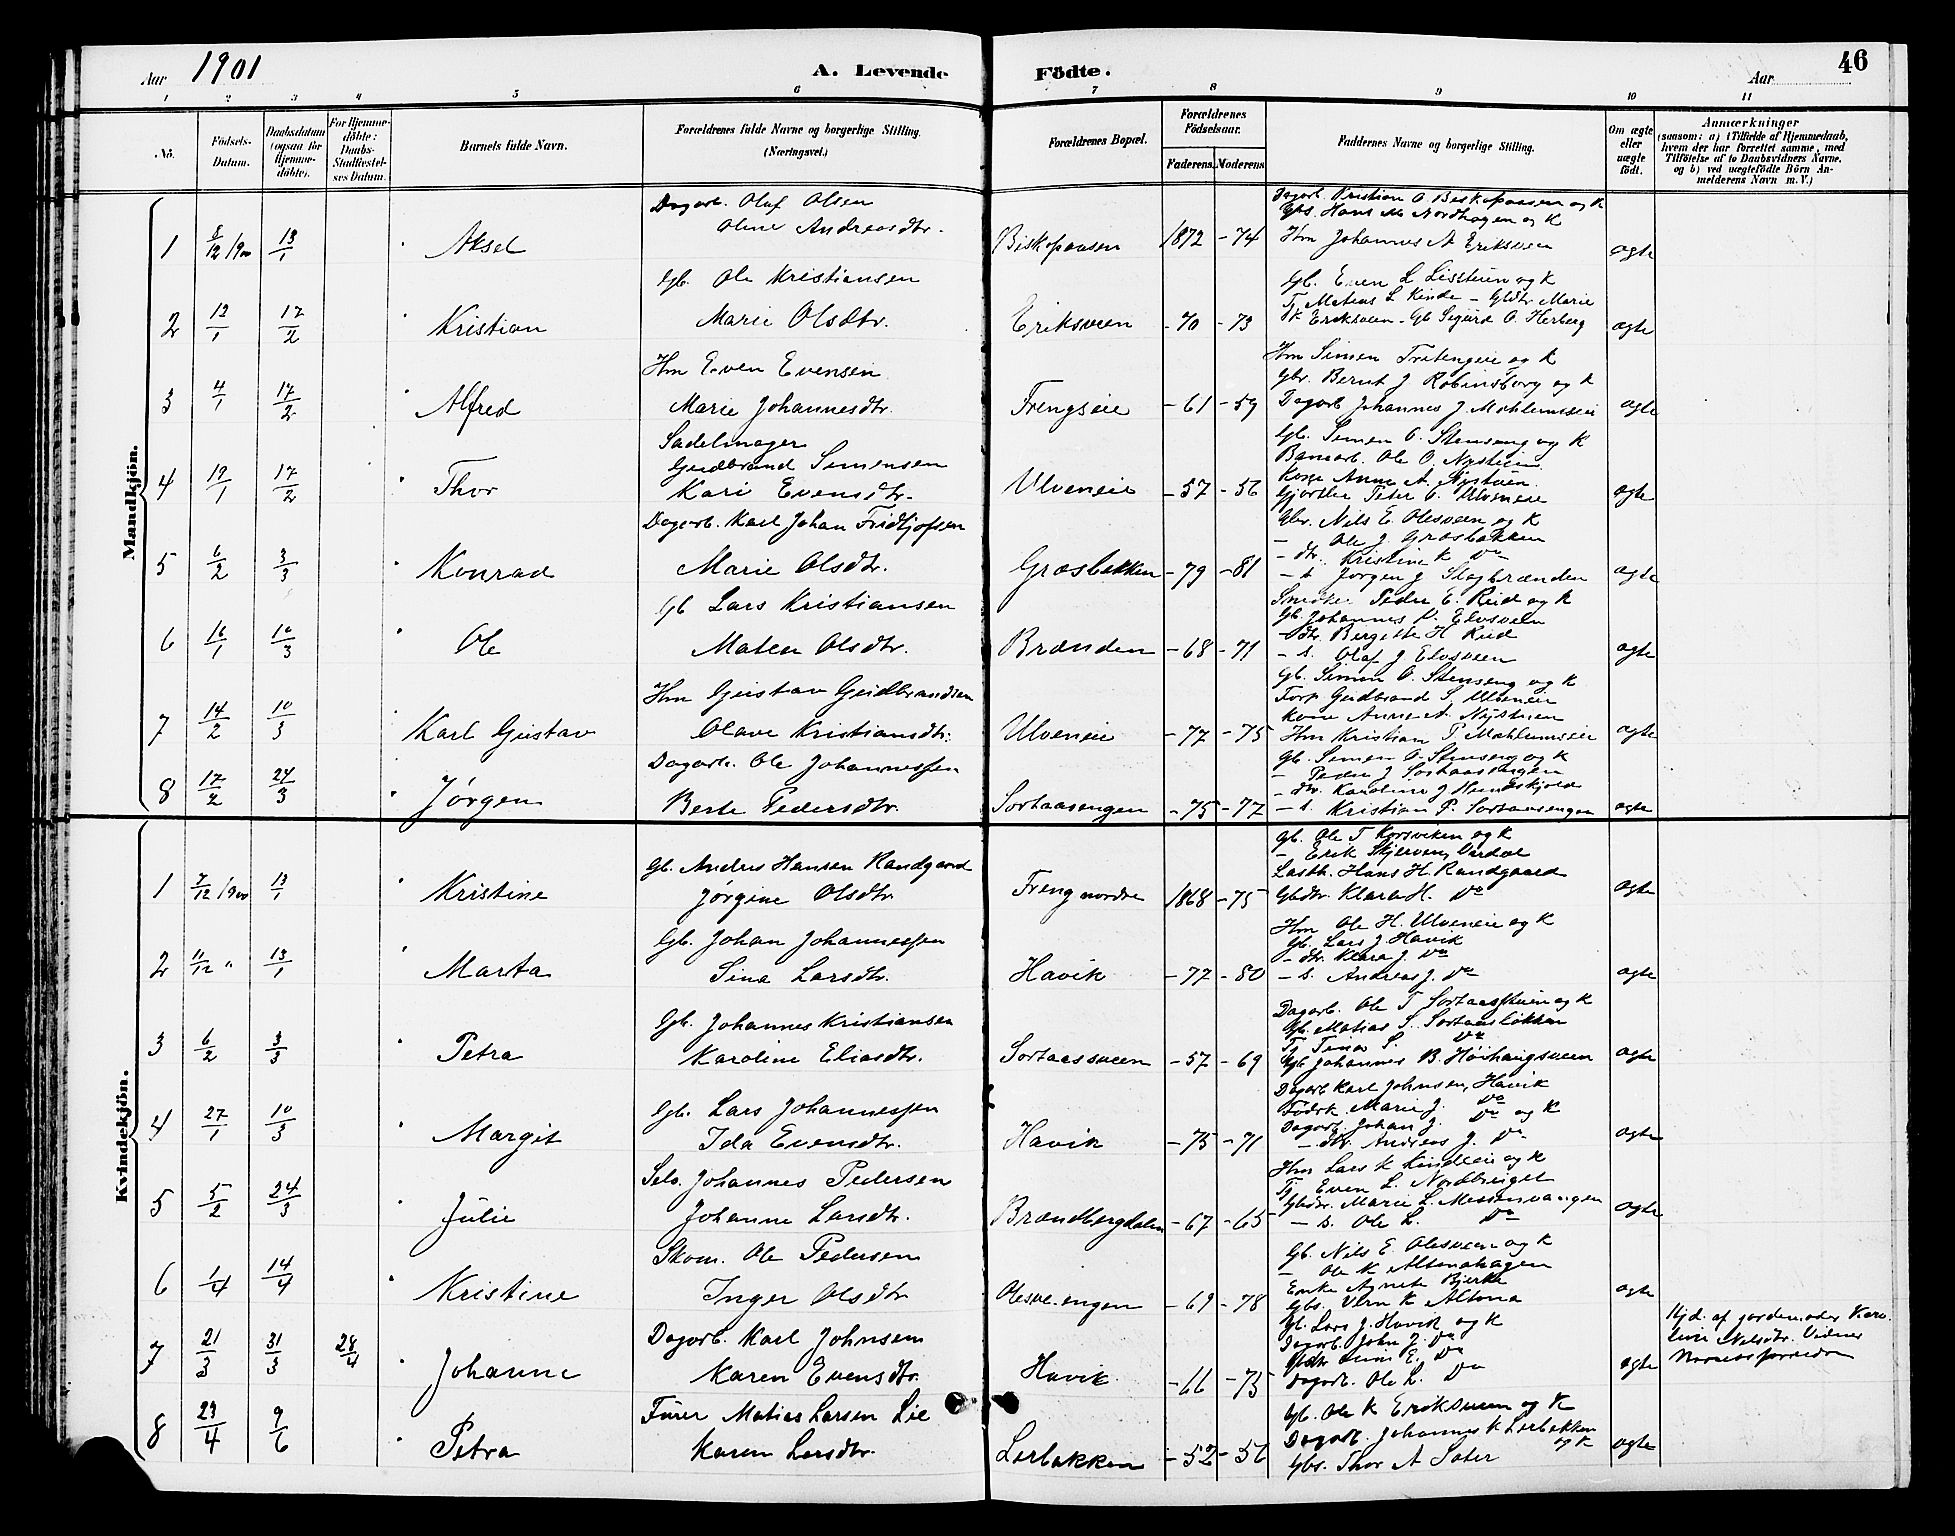 Aar 1901
A. Levende Födte.
Aar
46
1 2 3 4 5 6 7 8 9 10 11
No.
Födsels-Datum.
Daabsdatum (ogsaa för Hjemme-döbte).
For Hjemme-döbte: Daabs-Stadfæstel-ses Datum.
Barnets fulde Navn.
Forældrenes fulde Navne og borgerlige Stilling. (Næringsvei.)
Forældrenes Bopæl.
Forældrenes Födselsaar.
Faderens. Moderens.
Faddernes Navne og borgerlige Stilling.
Om ægte eller uægte födt.
Anmærkninger
(saasom: a) i Tilfælde af Hjemmedaab, hvem der har forrettet samme, med Tilföielse af to Daabsvidners Navne, og b) ved uægtefödte Börn An-melderens Navn m. V.)
Mandkjön.
1 8/12/900 13/1 Aksel Dagarb. Oluf Olsen
Oline Andreasdtr. Biskopaasen 1872 -74 Dagarb. Kristian O Biskopaasen og K
Gbs. Hans M Nordhagen og K
Hm Johannes A Eriksveen ægte
2 12/1 17/2 Kristian Gb. Ole Kristiansen
Marie Olsdtr. Eriksveen -70 -73 Gb. Even L Lisstuen og K
Tj. Matias L Kinde - Gbdtr Marie
K Eriksveen - Gb Sigurd O. Herberg ægte
3 4/1 17/2 Alfred Hm Even Evensen
Marie Johannesdtr. Frengseie -61 -59 Hm Simen Fratengeie og K
Gbr. Bernt J Robinsborg og K
Dagarb Johannes J. Mæhlumseie ægte
4 19/1 17/2 Thor Sadelmager
Gudbrand Simensen
Kari Evensdtr. Ulveneie -57 -56 Gb. Simen O. Stenseng og K
Banearb. Ole O. Nystuen
Kone Anne A. Nystuen
Gjørtler Peter O. Ulveneie ægte
5 6/2 3/3 Konrad Dagarb. Karl Johan Fridtjofsen
Marie Olsdtr. Græsbakken -79 -81 Gbr. Nils E. Olesveen og K
— Ole J. Græsbakken
— dtr. Kristine K Do
— s. Jørgen J Slagbrænden ægte
6 16/1 10/3 Ole Gb Lars Kristiansen
Maten Olsdtr. Brænden -68 -71 Peder E. Rud og K
Gb. Johannes P. Elvsveen
— dtr. Bergitte H Rud
— s. Olaf J Elvsveen ægte
7 14/2 10/3 Karl Gustav Hm Gustav Gudbrandsen
Olave Kristiansdtr. Ulveneie -77 -75 Gb. Simen O. Stenseng og K
Gudbrand S. Ulveneie
Kone Anne A. Nystuen
Hm Kristian P Mæhlumseie ægte
8 17/2 24/3 Jørgen Dagarb. Ole Johannessen
Berte Pedersdtr. Sortaasengen -75 -77 Gb. Simen O. Stenseng og K
— Peder J Sortaasengen
— dtr. Karoline J Hundskjold
— s. Kristian P. Sortaasengen ægte
Kvindekjön.
1 7/12/900 13/1 Kristine Gb. Anders Hansen Randgaard
Jørgine Olsdtr. Freng nordre 1868 -75 Gb. Ole T Korsviken og K
— Erik Skjerven, Vardal
Hans H. Randgaard
Gbdtr. Klara H. Do ægte
2 11/12 „ 13/1 Marta Gb. Johan Johannessen
Sina Larsdtr. Havik -77 -80 Hm Ole H. Ulveneie og K
Gb. Lars J. Havik
— dtr. Klara J. Do
— s. Andreas J. Do ægte
3 6/2 3/3 Petra Gb. Johannes Kristiansen
Karoline Eliasdtr. Sortaasveen -57 -69 Dagarb. Ole T Sortaasstuen og K
Gb. Matias S. Sortaasløkken
Tj Tina S. Do
Gb Johannes B. Høihaugsveen ægte
4 27/1 10/3 Margit Gb. Lars Johannessen
Ida Evensdtr. Havik -75 -71 Dagarb Karl Johnsen, Havik
Fødrk. Marie J. Do
Dagarb. Johan J. Do og K
— Andreas J. Do ægte
5 5/2 24/3 Julie Selv. Johannes Pedersen
Johanne Larsdtr. Brændbergdalen -67 -65 Hm Lars K Kindleie og K
Tj. Even L. Nordbriget
Gbdtr. Marie L. Messenvangen
— s. Ole L. Do ægte
6 1/4 14/4 Kristine Skom. Ole Pedersen
Inger Olsdtr Olesveengen -69 -78 Gb. Nils E. Olesveen og K
— Ole K Altonahagen
Enke Agnete Bjerke
Gbs. K Altona ægte
7 21/3 31/3 28/4 Johanne Dagarb. Karl Johnsen
Karen Evensdtr. Havik -66 -75 Gb. Lars J. Havik og K
Dagarb. John J. Do
E. Do
Dagarb. Ole L. Do ægte Hjd. af jordemoder Karo-
line Nelsdtr. Vidner
8 23/4 9/6 Petra Furer Matias Larsen Lie
Karen Larsdtr. Lerbakken -52 -56 Gb. Ole K Eriksveen og K
Dagarb. Johannes K Lerbakken
og K
Gbs. Thor A Sater ægte